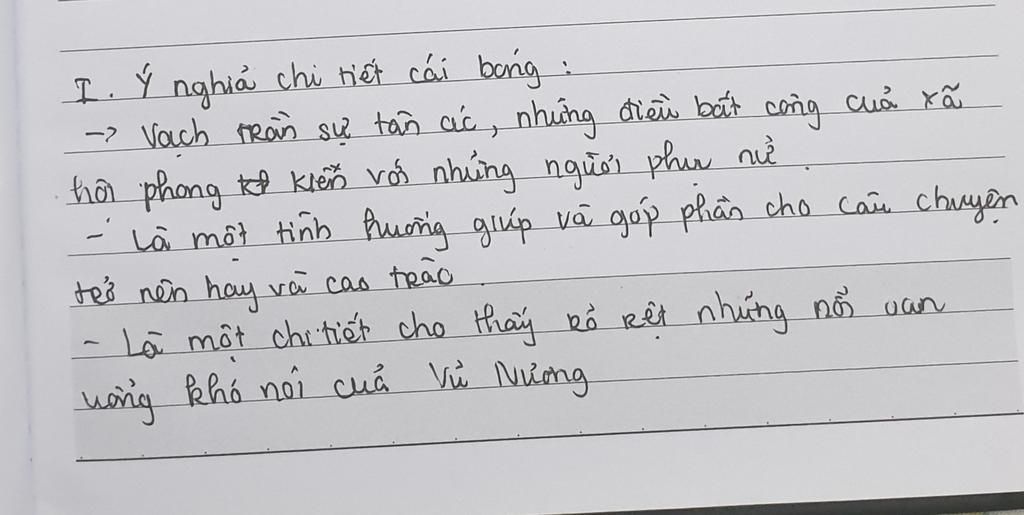 I. Ý nghiã chi tiết cái bóng :
-> Vạch trần sự tàn ác, những điều bất công cuả xã
hội phong kiến với những người phụ nử.
- Là một tình huống giúp và góp phần cho câu chuyện
trở nên hay và cao trào.
- Là một chi tiết cho thấy rỏ rệt những nổi oan
uổng khó nói cuả Vủ Nương